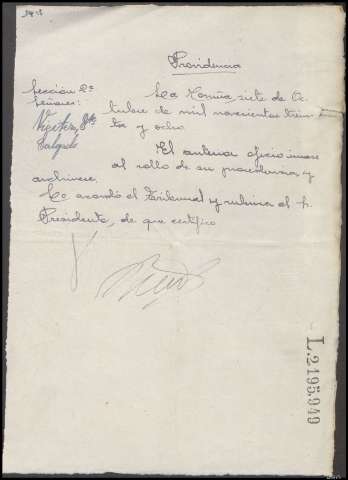 Providencia
Sección 2ª
Señores:
Salgado
La Coruña, siete de Oc-
tubre de mil novecientos trein-
ta y ocho
El anterior oficio únase
al rollo de su procedencia y
archívese.
Lo acordó el Tribunal y rubrica el Sr.
Presidente, de que certifico
L.2195.949